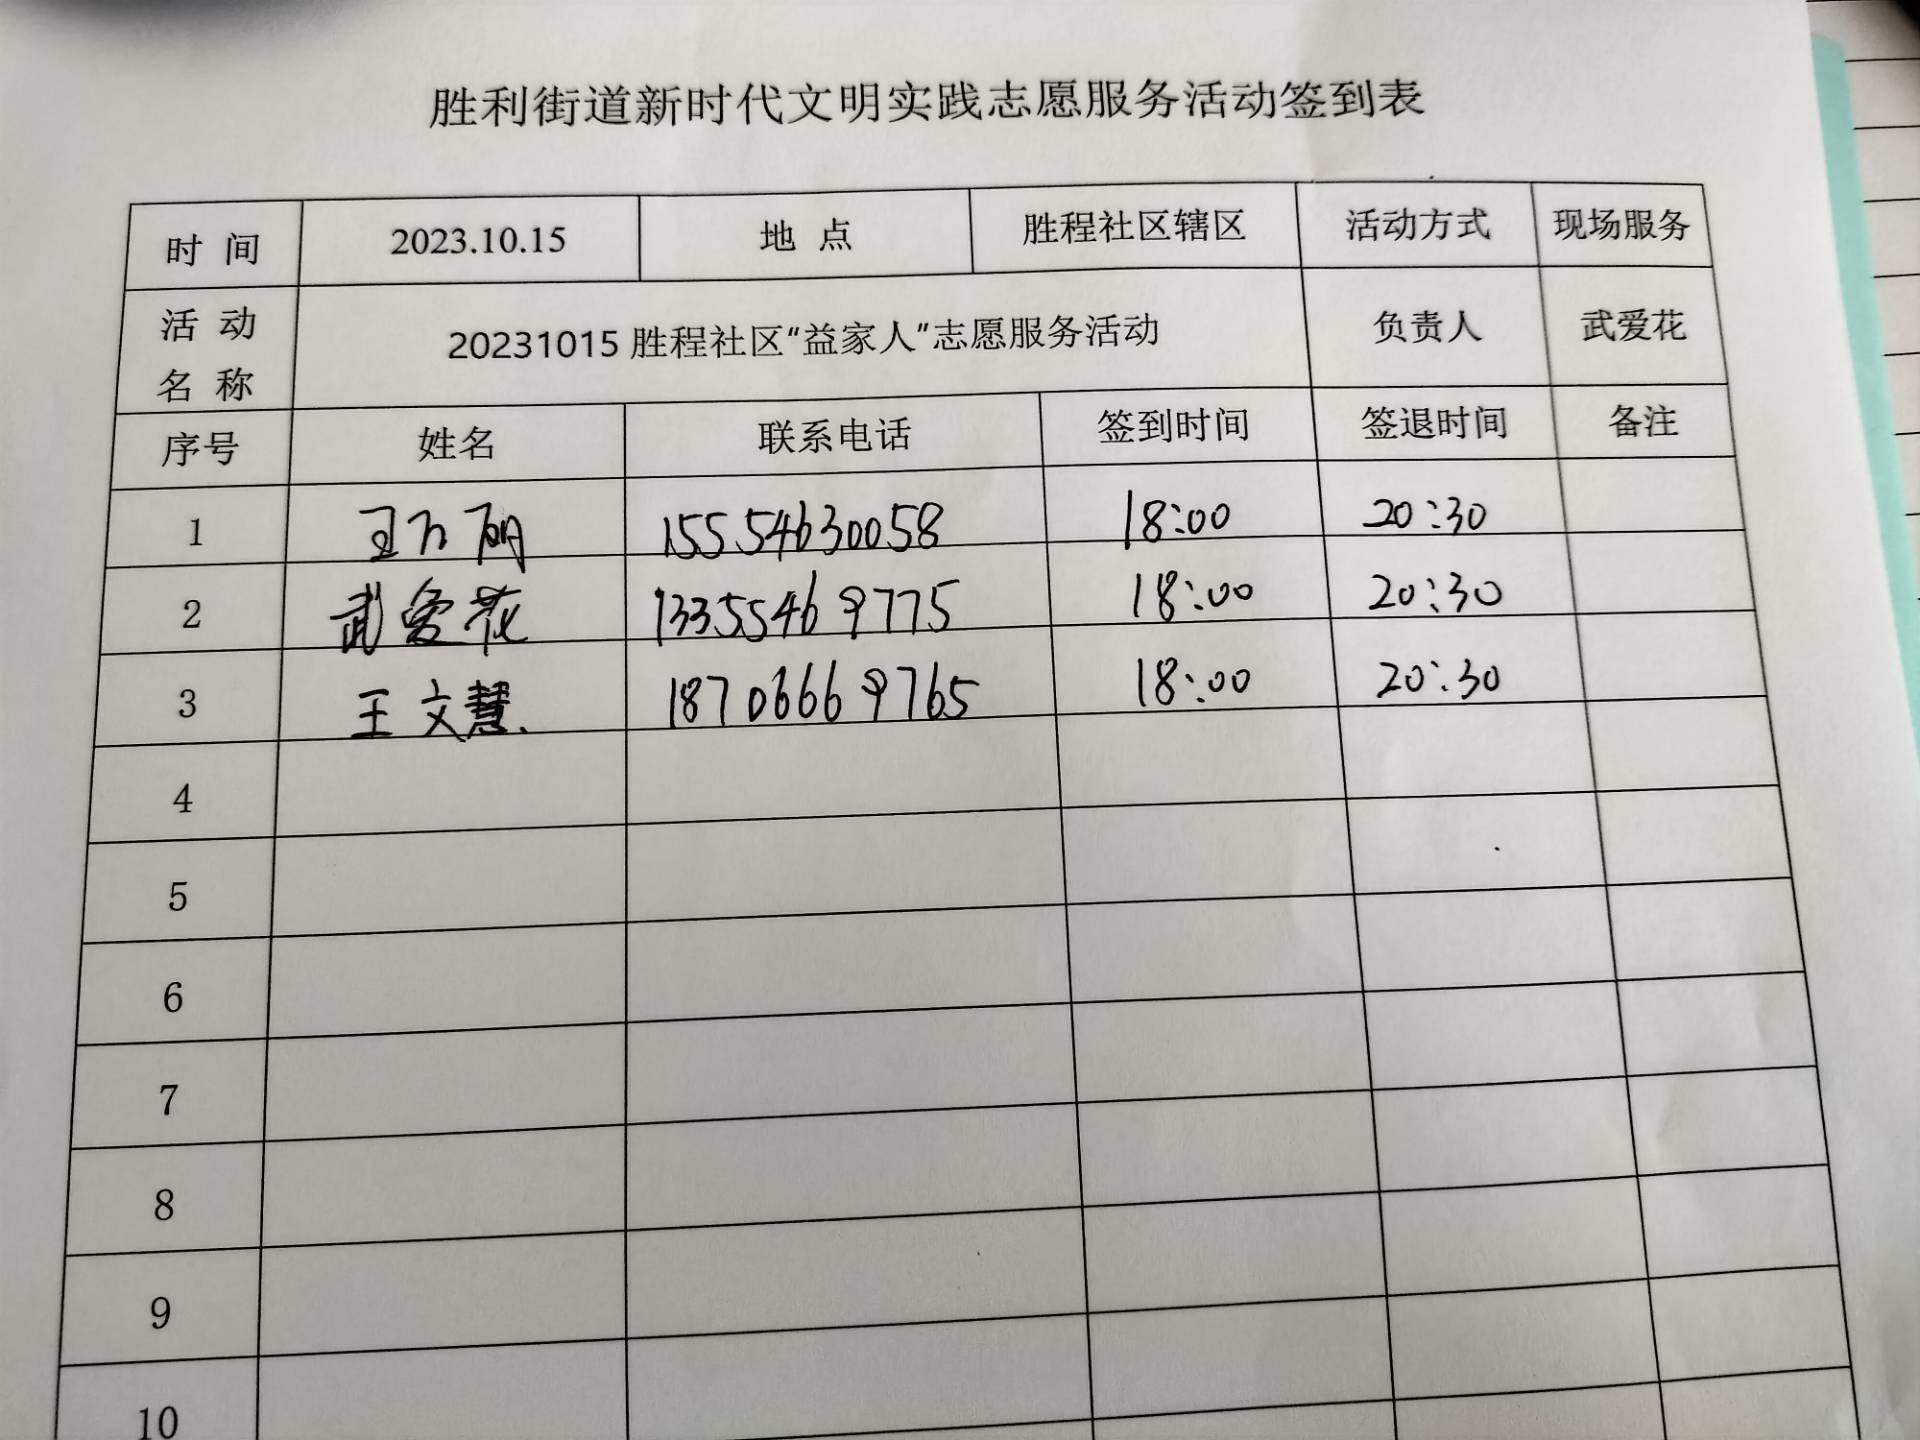 胜利街道新时代文明实践志愿服务活动签到表
时 间 2023.10.15 地 点 胜程社区辖区 活动方式 现场服务
活 动
名 称 20231015 胜程社区“益家人”志愿服务活动 负责人 武爱花
序号 姓名 联系电话 签到时间 签退时间 备注
1 王 15554630058 18:00 20:30
2 武爱花 13355469775 18:00 20:30
3 王文慧. 18706669765 18:00 20:30
4
5
6
7
8
9
10